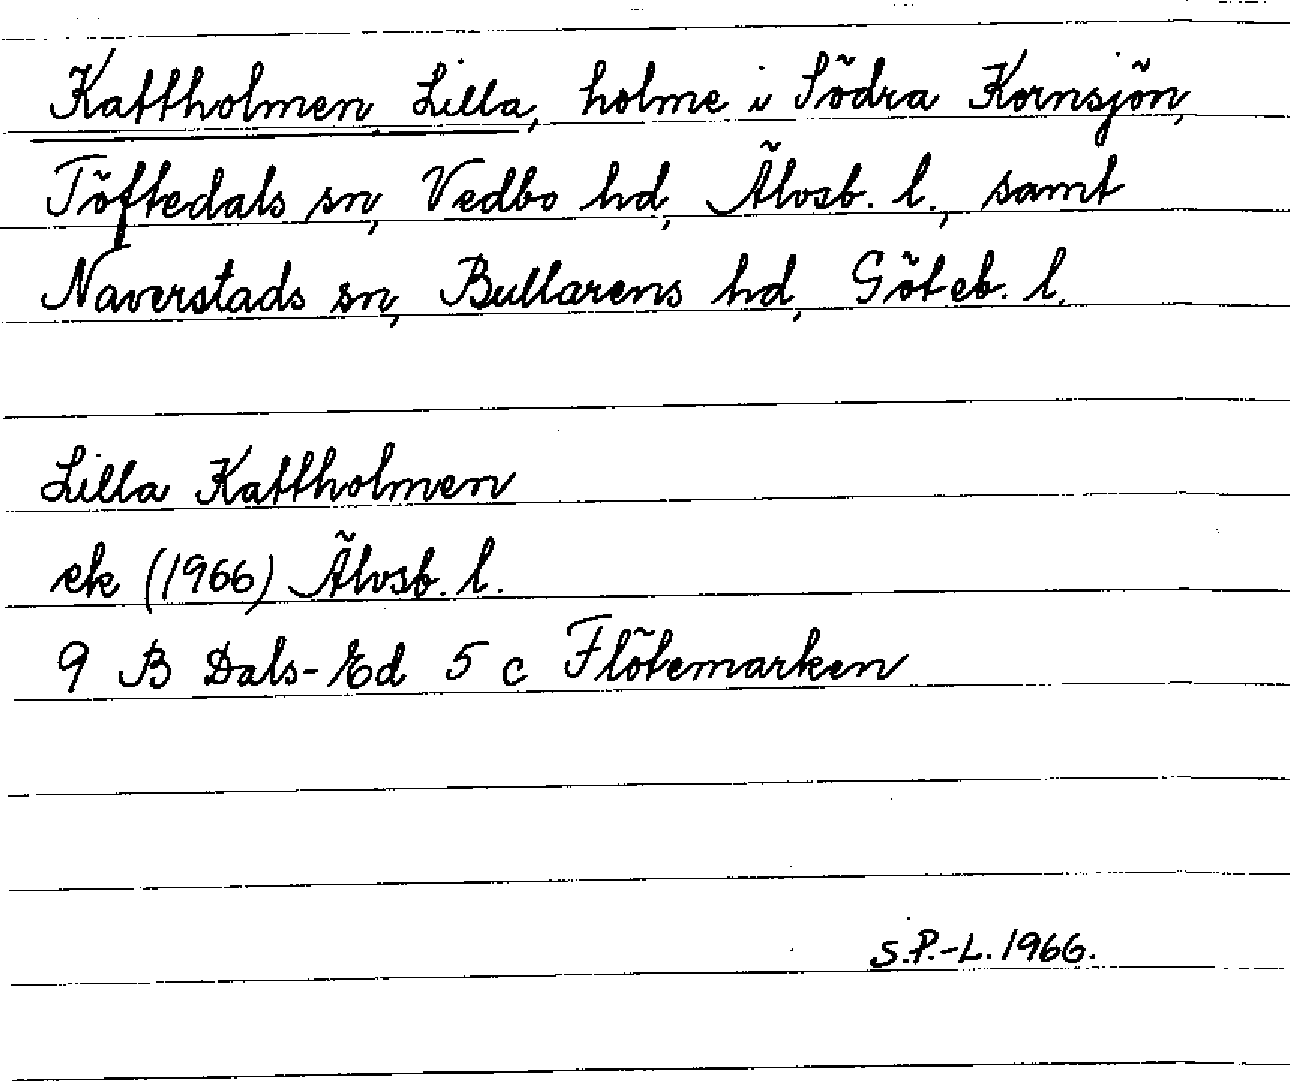 Kattholmen, Lilla, holme i Södra Kornsjön,
Töftedals sn, Vedbo hd, Älvsb. l., samt
Naverstads sn, Bullarens hd, Göteb. l.
Lilla Kattholmen
ek (1966) Älvsb. l.
9 B Dals-Ed 5 c Flötemarken
S.P.-L. 1966.